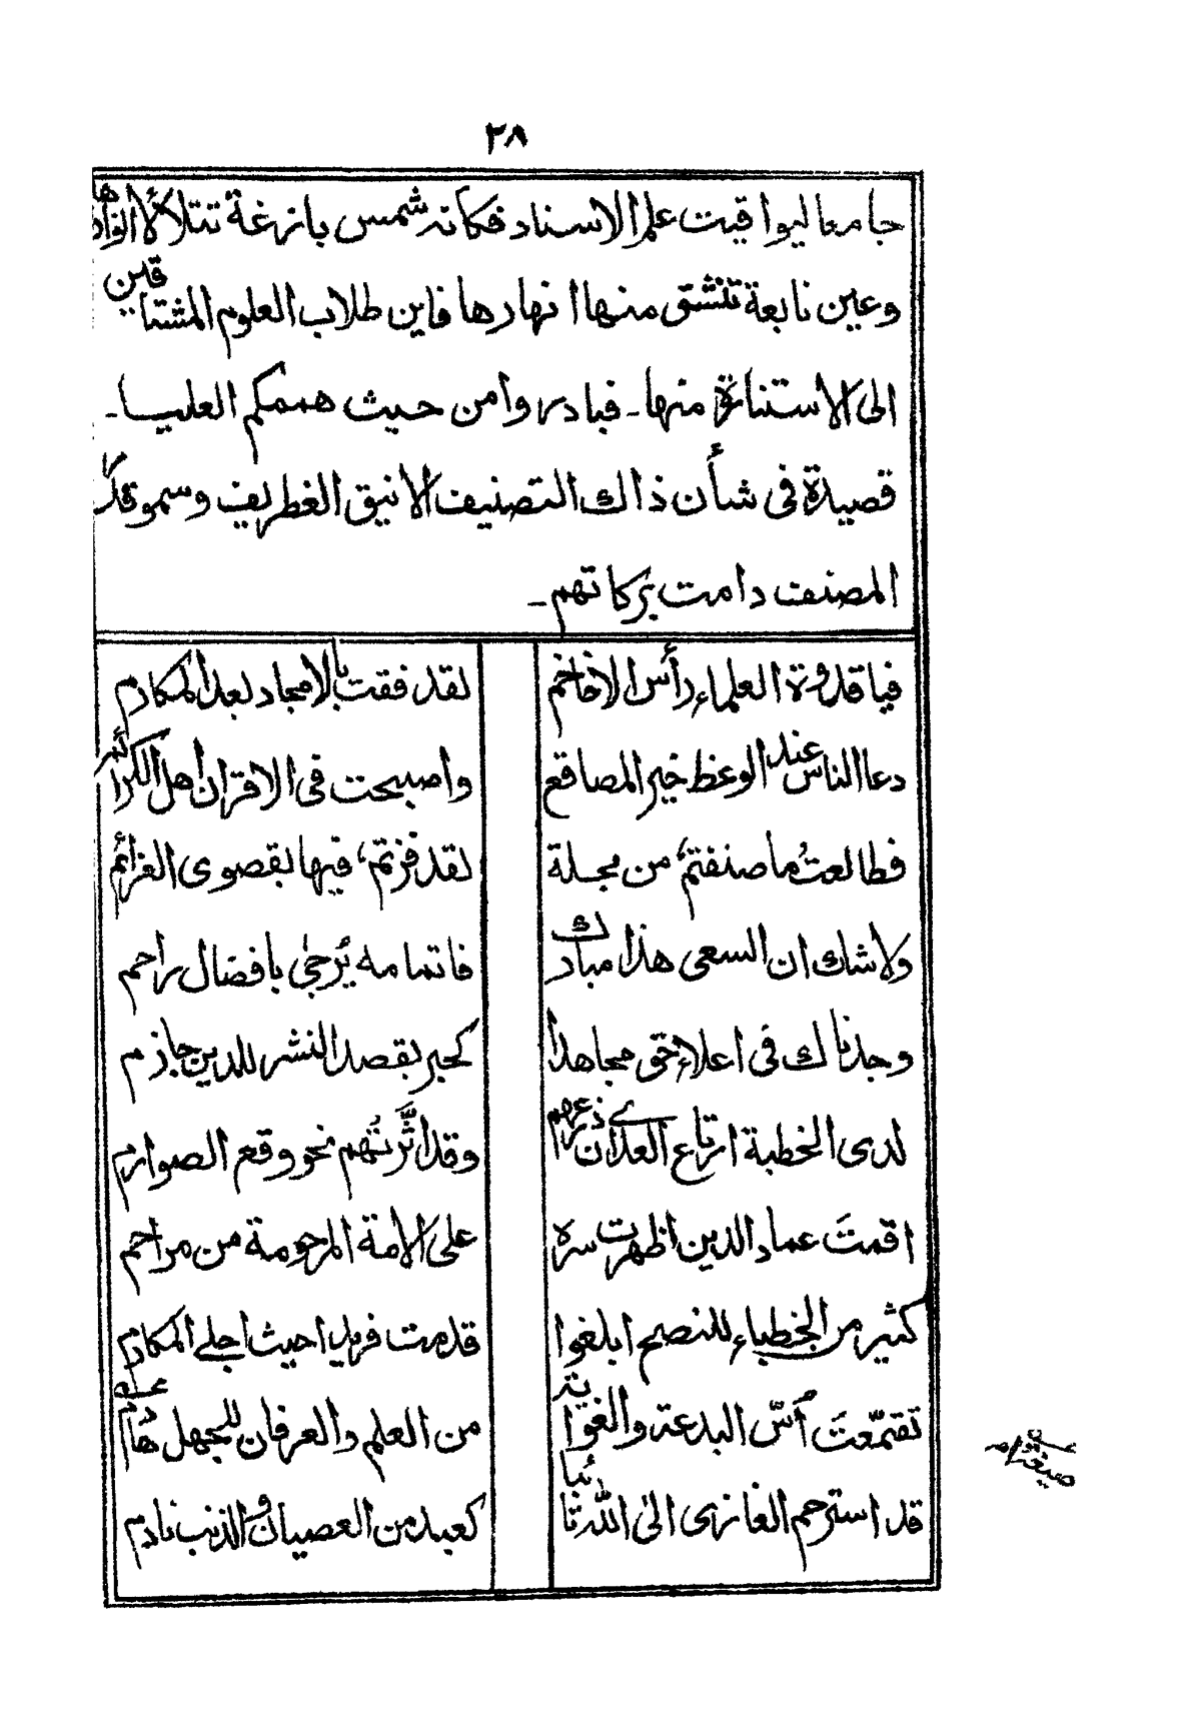 ٢٨
جامعا ليواقيت علم الاسناد فكانه شمس بازغة تتلألأ انوارها
وعين نابعة تنشق منها انهارها فاين طلاب العلوم المشتاقين
الى الاستنارة منها۔ فبادروا من حيث هممكم العليا۔
قصيدة فى شأن ذالك التصنيف الانيق الغطريف وسمو قدر
المصنف دامت بركاتهم۔
فيا قدوة العلماء رأس الافاخم لقد فقت بالامجاد بعد المكارم
دعا الناس عند الوعظ خير المصاقع واصبحت فى الاقران اهل الكرائم
فطالعتُ ما صنفتم من مجلة لقد فزتم فيها بقصوى العزائم
ولا شك ان السعى هذا مبارك فاتمامه يُرجىٰ بافضال راحم
وجدناك فى اعلاء حق مجاهدا كحبر بقصد النشر للدين جازم
لدى الخطبة ارتاع العدىٰ ذعرهم وقد اثّرتُهم نحو وقع الصوارم
اقمتَ عماد الدين اظهرت سره على الامة المرحومة من مراحم
كثير من الخطباء للنصح ابلغوا قدمت فريدا حيث اجلى المكارم
تقمّعتَ أسّ البدعة والغواية من العلم والعرفان للجهل هادم
قد استرحم الغازى الى الله تائبا كعبد من العصيان والذنب نادم